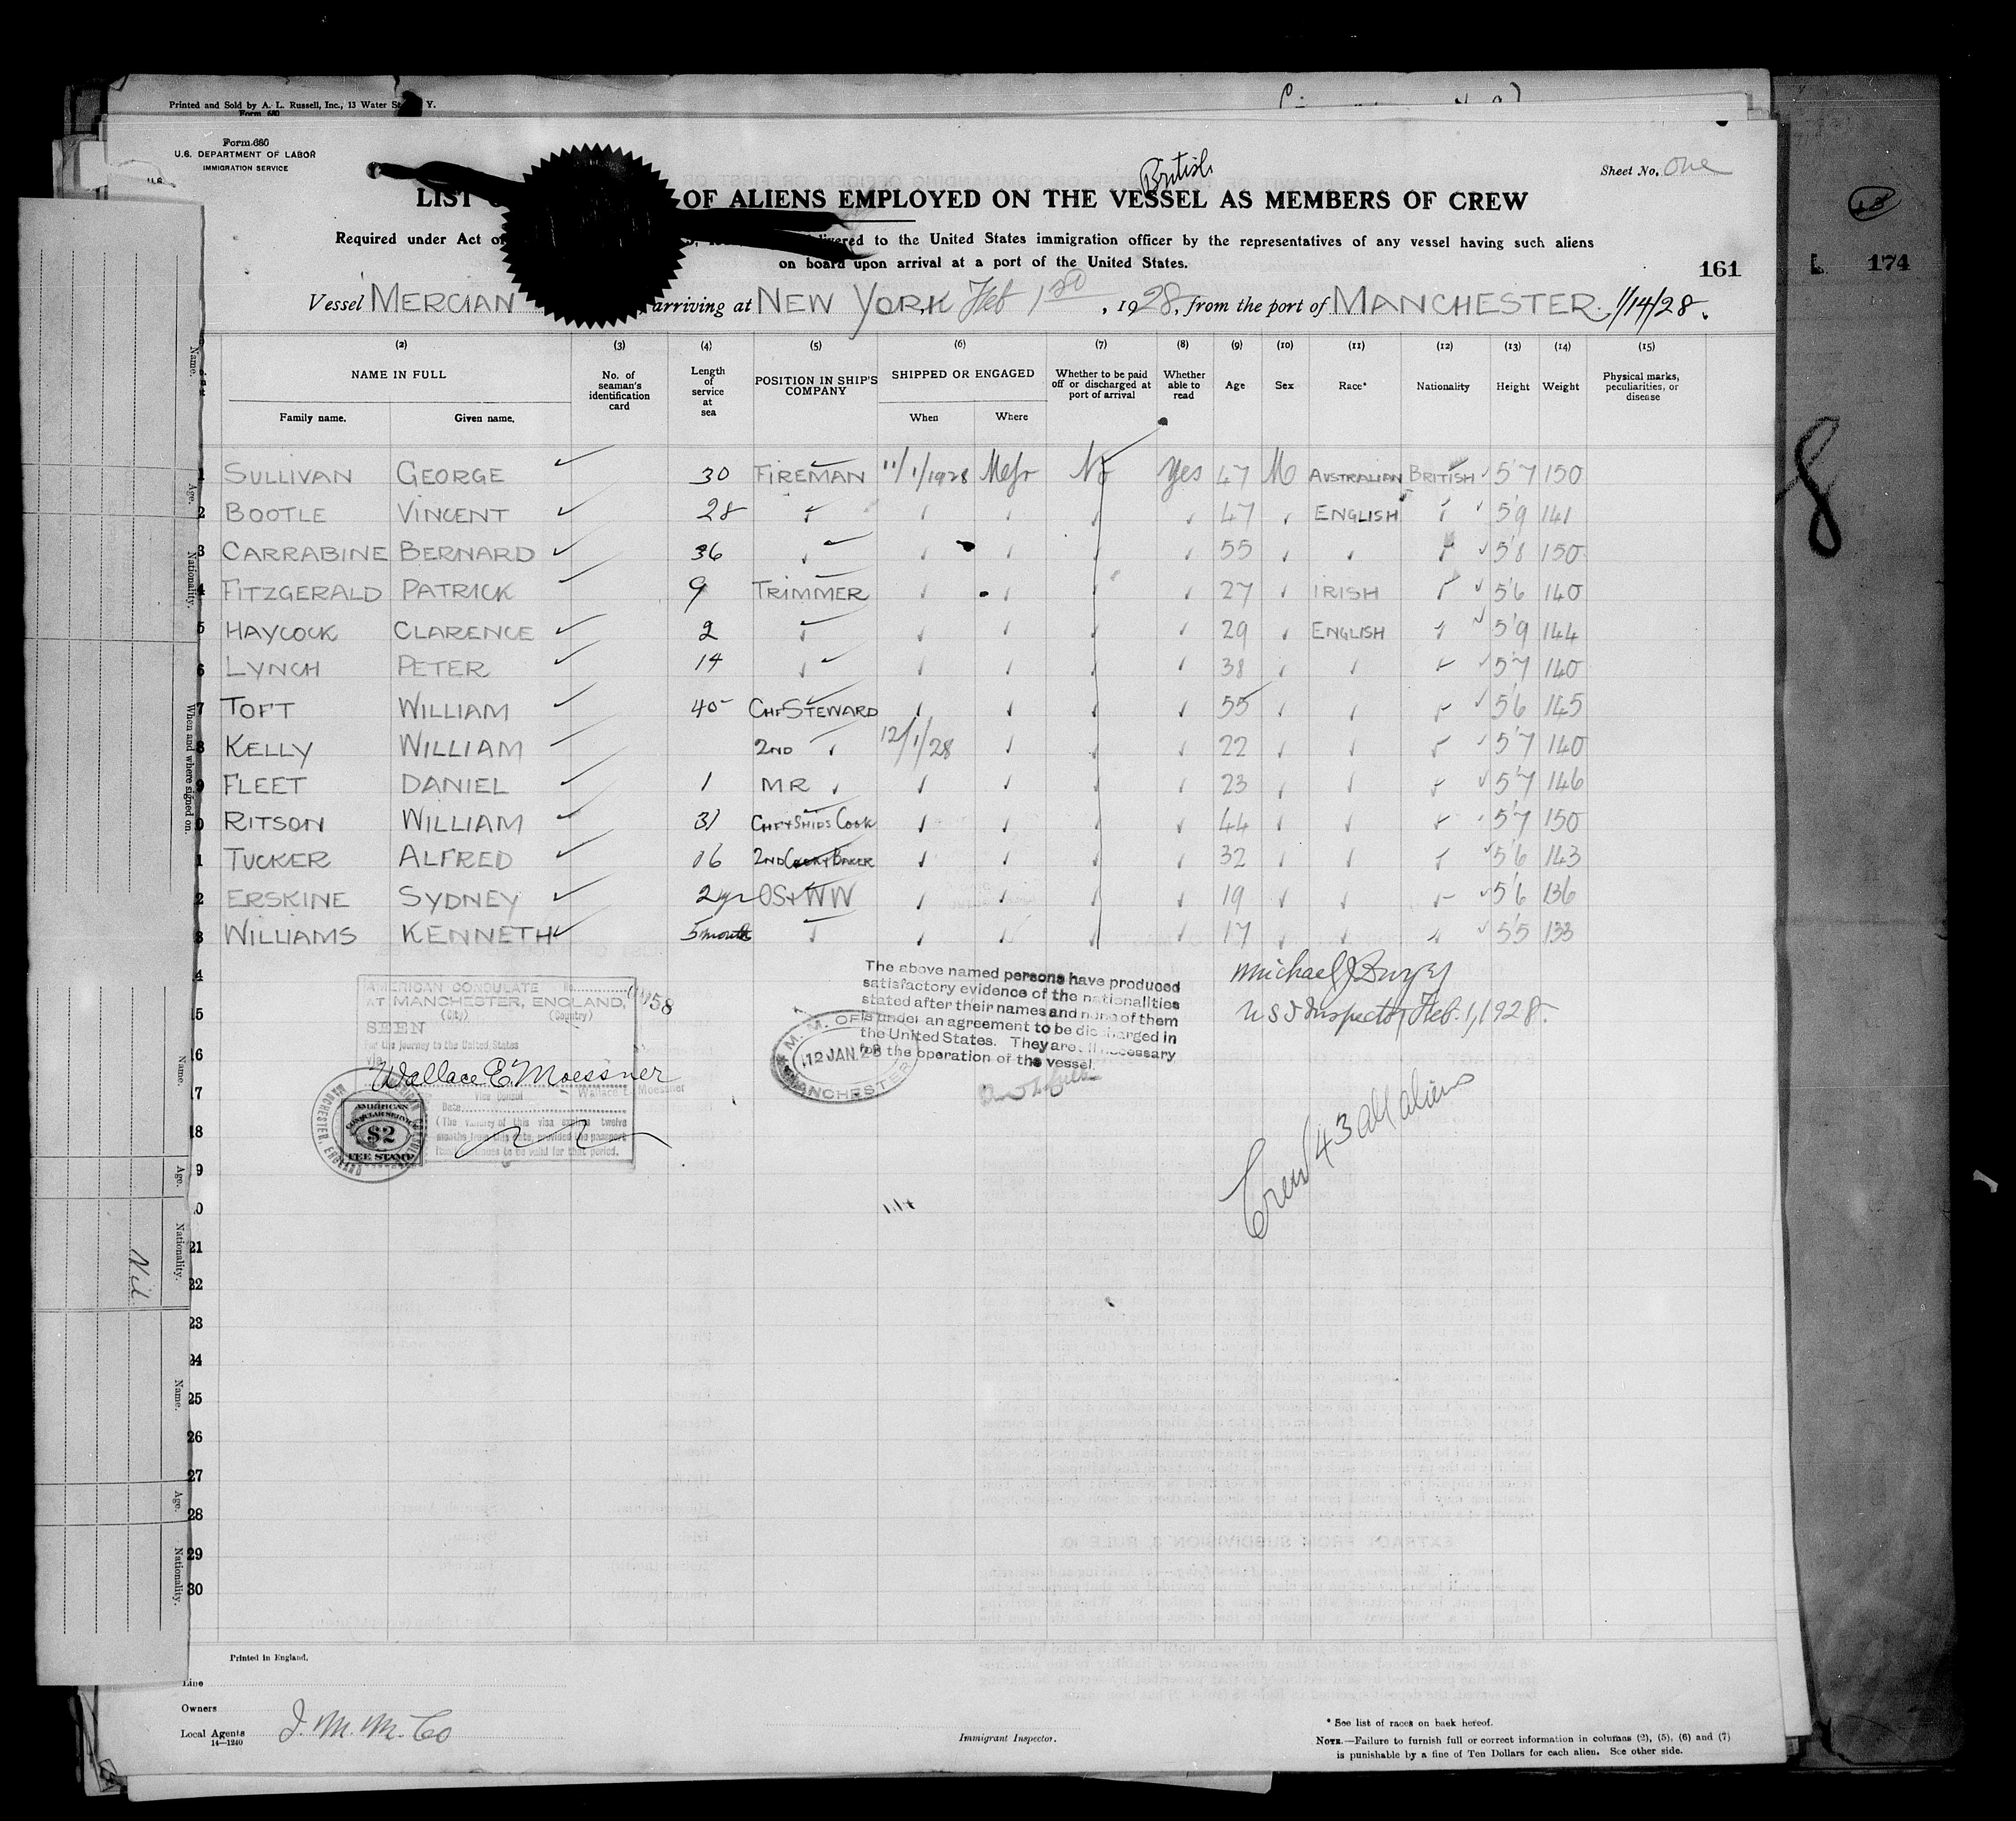 Printed and Sold by A. L. Russell, Inc., 13 Water St Y.
Form 680
Form 680
U.S. DEPARTMENT OF LABOR
IMMIGRATION SERVICE
Sheet No. One
British
LIST OF ALIENS EMPLOYED ON THE VESSEL AS MEMBERS OF CREW
Required under Act of delivered to the United States immigration officer by the representatives of any vessel having such aliens
on board upon arrival at a port of the United States.
161
174
Vessel MERCIAN arriving at NEW YORK Feb 1, 1928, from the port of MANCHESTER. 1/14/28.
(2) (3) (4) (5) (6) (7) (8) (9) (10) (11) (12) (13) (14) (15)
NAME IN FULL No. of seaman's identification card Length of service at sea POSITION IN SHIP'S COMPANY SHIPPED OR ENGAGED Whether to be paid off or discharged at port of arrival Whether able to read Age Sex Race* Nationality Height Weight Physical marks, peculiarities, or disease
Family name. Given name. When Where
1 SULLIVAN GEORGE ✓ 30 FIREMAN 11/1/1928 M/cr No Yes 47 M AUSTRALIAN BRITISH ✓ 5'7 150
2 BOOTLE VINCENT ✓ 28 ✓ ✓ ✓ ✓ ✓ 47 ✓ ENGLISH ✓ ✓ 5'9 141
3 CARRABINE BERNARD ✓ 36 ✓ ✓ ✓ ✓ ✓ 55 ✓ ✓ ✓ ✓ 5'8 150
4 FITZGERALD PATRICK ✓ 9 TRIMMER ✓ ✓ ✓ ✓ 27 ✓ IRISH ✓ ✓ 5'6 140
5 HAYCOCK CLARENCE ✓ 2 ✓ ✓ ✓ ✓ ✓ 29 ✓ ENGLISH ✓ ✓ 5'9 144
6 LYNCH PETER ✓ 14 ✓ ✓ ✓ ✓ ✓ 38 ✓ ✓ ✓ ✓ 5'7 140
7 TOFT WILLIAM ✓ 40 CHF STEWARD ✓ ✓ ✓ ✓ 55 ✓ ✓ ✓ ✓ 5'6 145
8 KELLY WILLIAM ✓ 2ND ✓ 12/1/28 ✓ ✓ ✓ 22 ✓ ✓ ✓ ✓ 5'7 140
9 FLEET DANIEL ✓ 1 MR ✓ ✓ ✓ ✓ ✓ 23 ✓ ✓ ✓ ✓ 5'7 146
0 RITSON WILLIAM ✓ 31 CHF & SHIPS COOK ✓ ✓ ✓ ✓ 44 ✓ ✓ ✓ ✓ 5'7 150
1 TUCKER ALFRED ✓ 16 2ND COOK & BAKER ✓ ✓ ✓ ✓ 32 ✓ ✓ ✓ ✓ 5'6 143
2 ERSKINE SYDNEY ✓ 2 yr OS & WW ✓ ✓ ✓ ✓ 19 ✓ ✓ ✓ ✓ 5'6 136
3 WILLIAMS KENNETH ✓ 5 month ✓ ✓ ✓ ✓ ✓ 17 ✓ ✓ ✓ ✓ 5'5 133
4
5
6
7
8
9
0
21
22
23
24
25
26
27
28
29
30
AMERICAN CONSULATE No. 958
AT MANCHESTER, ENGLAND,
(City) (Country)
SEEN
For the journey to the United States
via
Wallace E Moessner
Vice Consul Wallace E. Moessner
Date
(The validity of this visa expires twelve
months from this date, provided the passport
continues to be valid for that period.
AMERICAN
CONSULAR SERVICE
$2
FEE STAMP
MANCHESTER, ENGLAND
The above named persons have produced
satisfactory evidence of the nationalities
stated after their names and none of them
is under an agreement to be discharged in
the United States. They are all necessary
for the operation of the vessel.
M. M. OFFICE
12 JAN. 28
MANCHESTER
Michael J
U S I Inspector, Feb. 1, 1928.
Crew 43 all aliens
Name.
Age.
Nationality.
When and where signed on.
Name.
Age.
Nationality.
Nil
Name.
Age.
Nationality.
8
Printed in England.
Line
Owners
Local Agents I. M. M. Co
14—1240
Immigrant Inspector.
* See list of races on back hereof.
NOTE.—Failure to furnish full or correct information in columns (2), (5), (6) and (7)
is punishable by a fine of Ten Dollars for each alien. See other side.